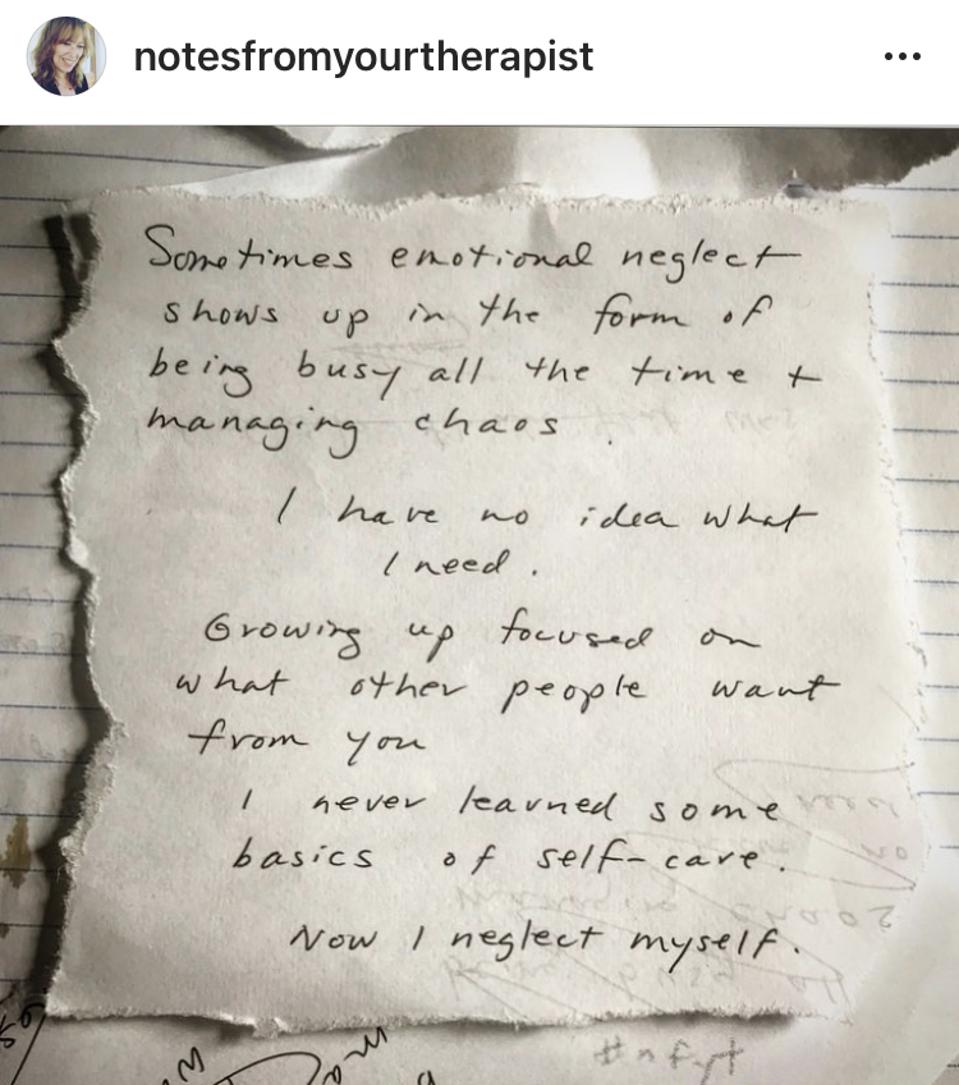 notesfromyourtherapist
Sometimes emotional neglect
shows up in the form of
being busy all the time +
managing chaos.
I have no idea what
I need.
Growing up focused on
what other people want
from you
I never learned some
basics of self-care.
Now I neglect myself.
#nfyt